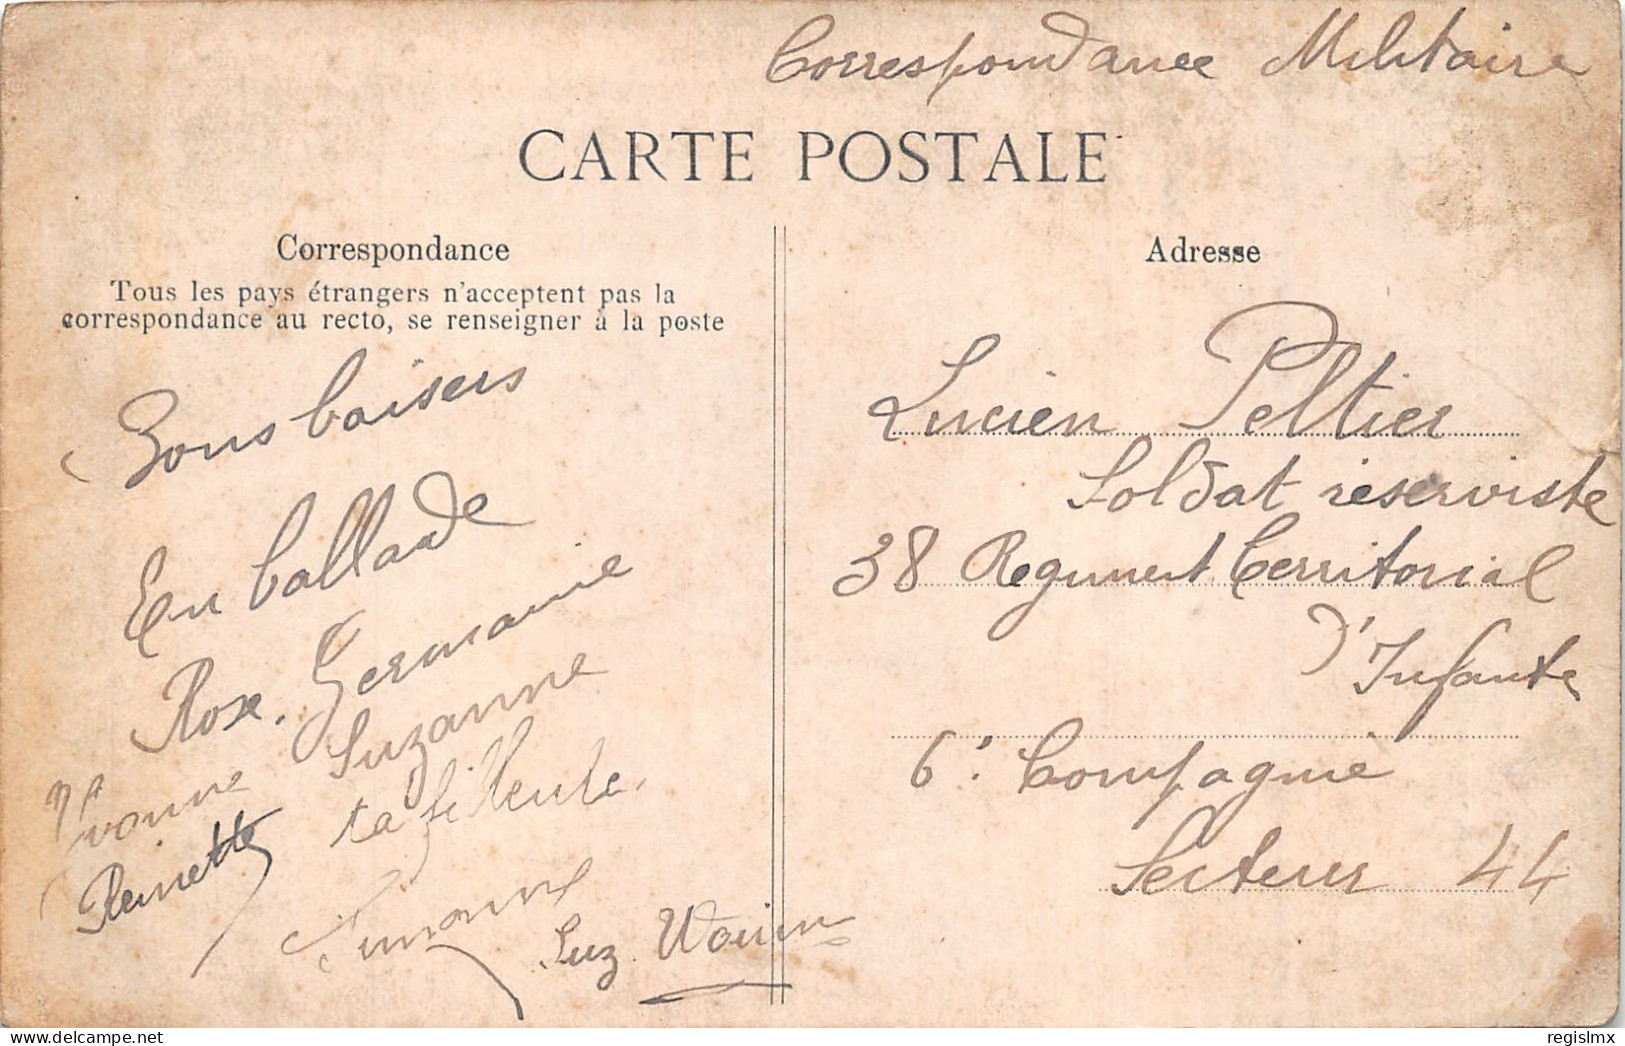 Correspondance Militaire
CARTE POSTALE
Correspondance
Tous les pays étrangers n'acceptent pas la
correspondance au recto, se renseigner à la poste
Bons baisers
En ballade
Rose. Germaine
Yvonne Suzanne
Reinette ta filleule.
Simonne
Suz.
Adresse
Lucien Peltier
Soldat réserviste
38 Regiment Territorial
d'Infante
6e Compagnie
Secteur 44
regislmx